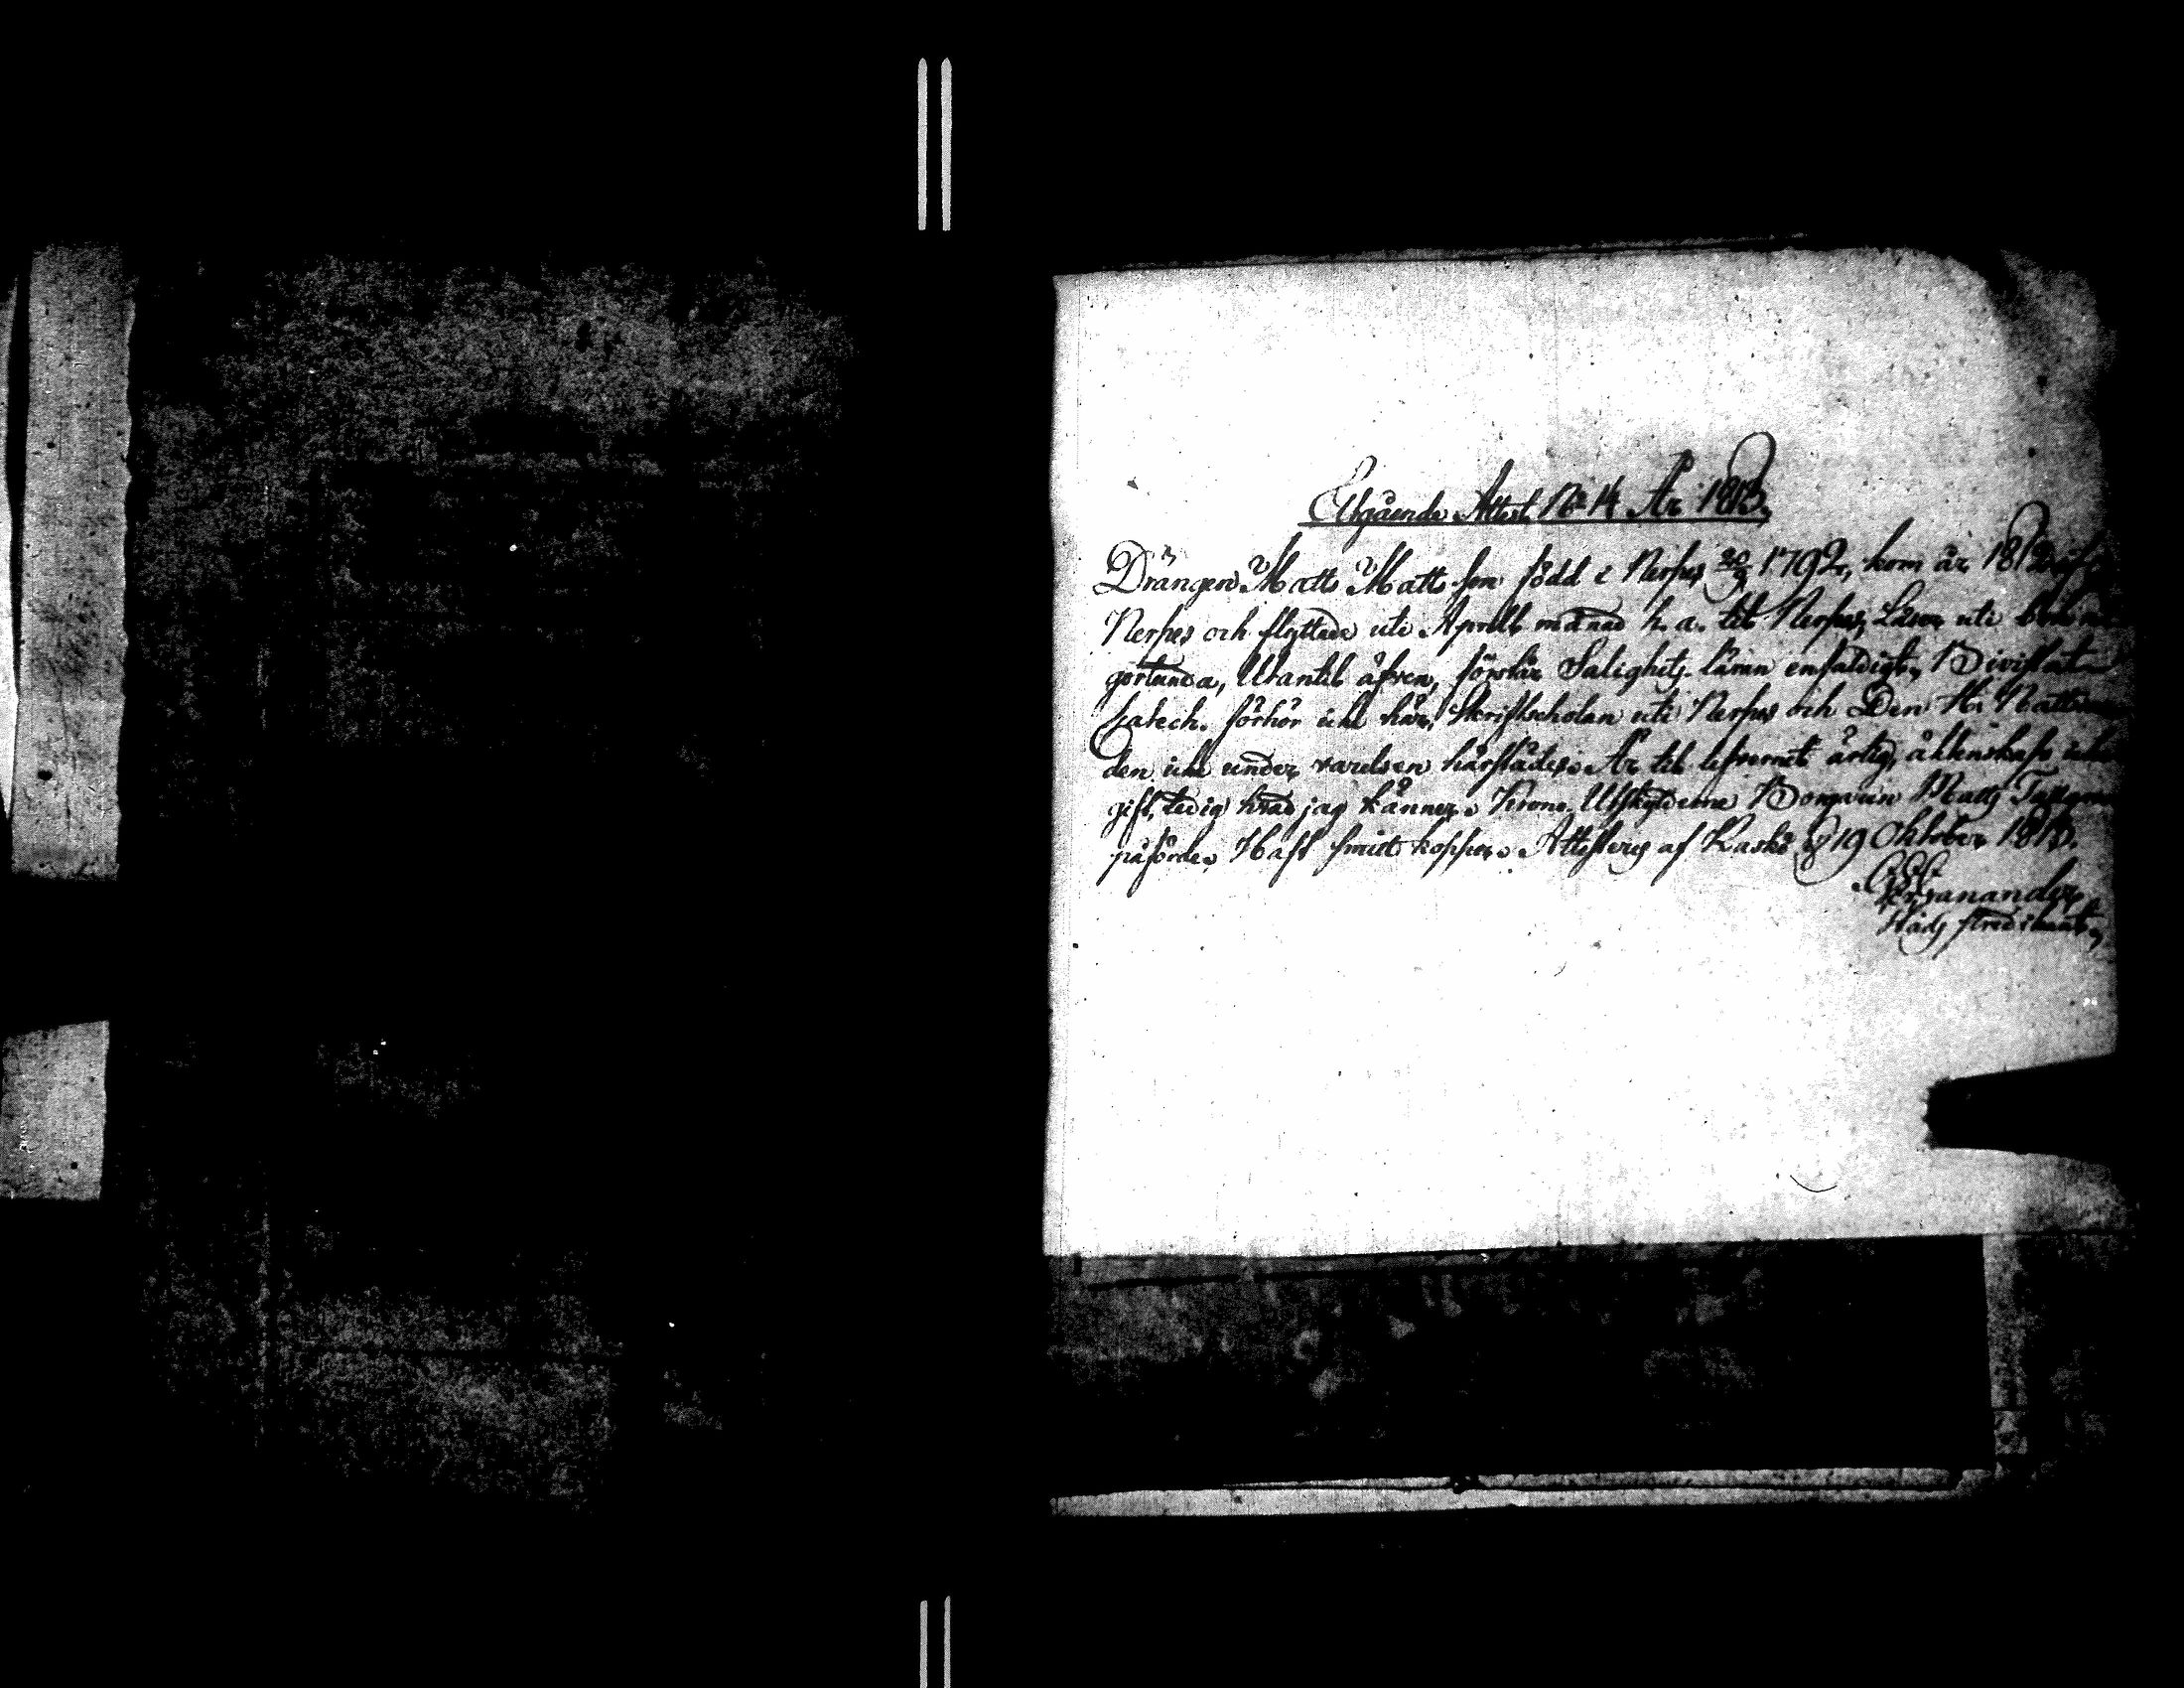 Utgående Attest No 14 År 1813.
Drängen Matts Matts son född i Nerpes 20/9 1792, kom år 1812 ifr
Nerpes och flyttade uti Aprill månad h. a. till Nerpes, Läser uti bok
görlunda, Utantil äfven, förstår Salighets läran enfaldigt,
Catech. förhör icke här, Skriftscholan uti Nerpes och Den H. Nattvar
den icke under varelsen härstädes. Är til lefvernet ärlig, äktenskaps
gift, ledig hvad jag känner. Krono Utskylderne Borgaren Matts
påförde. Haft smitt koppor. Attesteras af Kaskö d 19 Oktober 1813.
Ganander